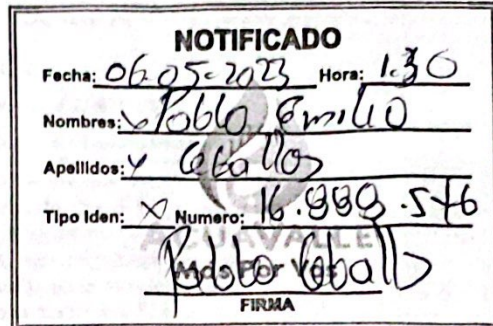 NOTIFICADO
Fecha: 06-05-2023 Hora: 1:30
Nombres: Pablo Emilio
Apellidos: Ceballos
Tipo Iden: X Numero: 16.
ACUAVALLE
Más Por Vos
Pablo Ceballos
FIRMA